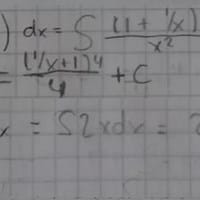 ) dx = ∫ (1 + 1/x) / x²
= (1/x+1)4 / 4 + C
x = ∫2xdx =